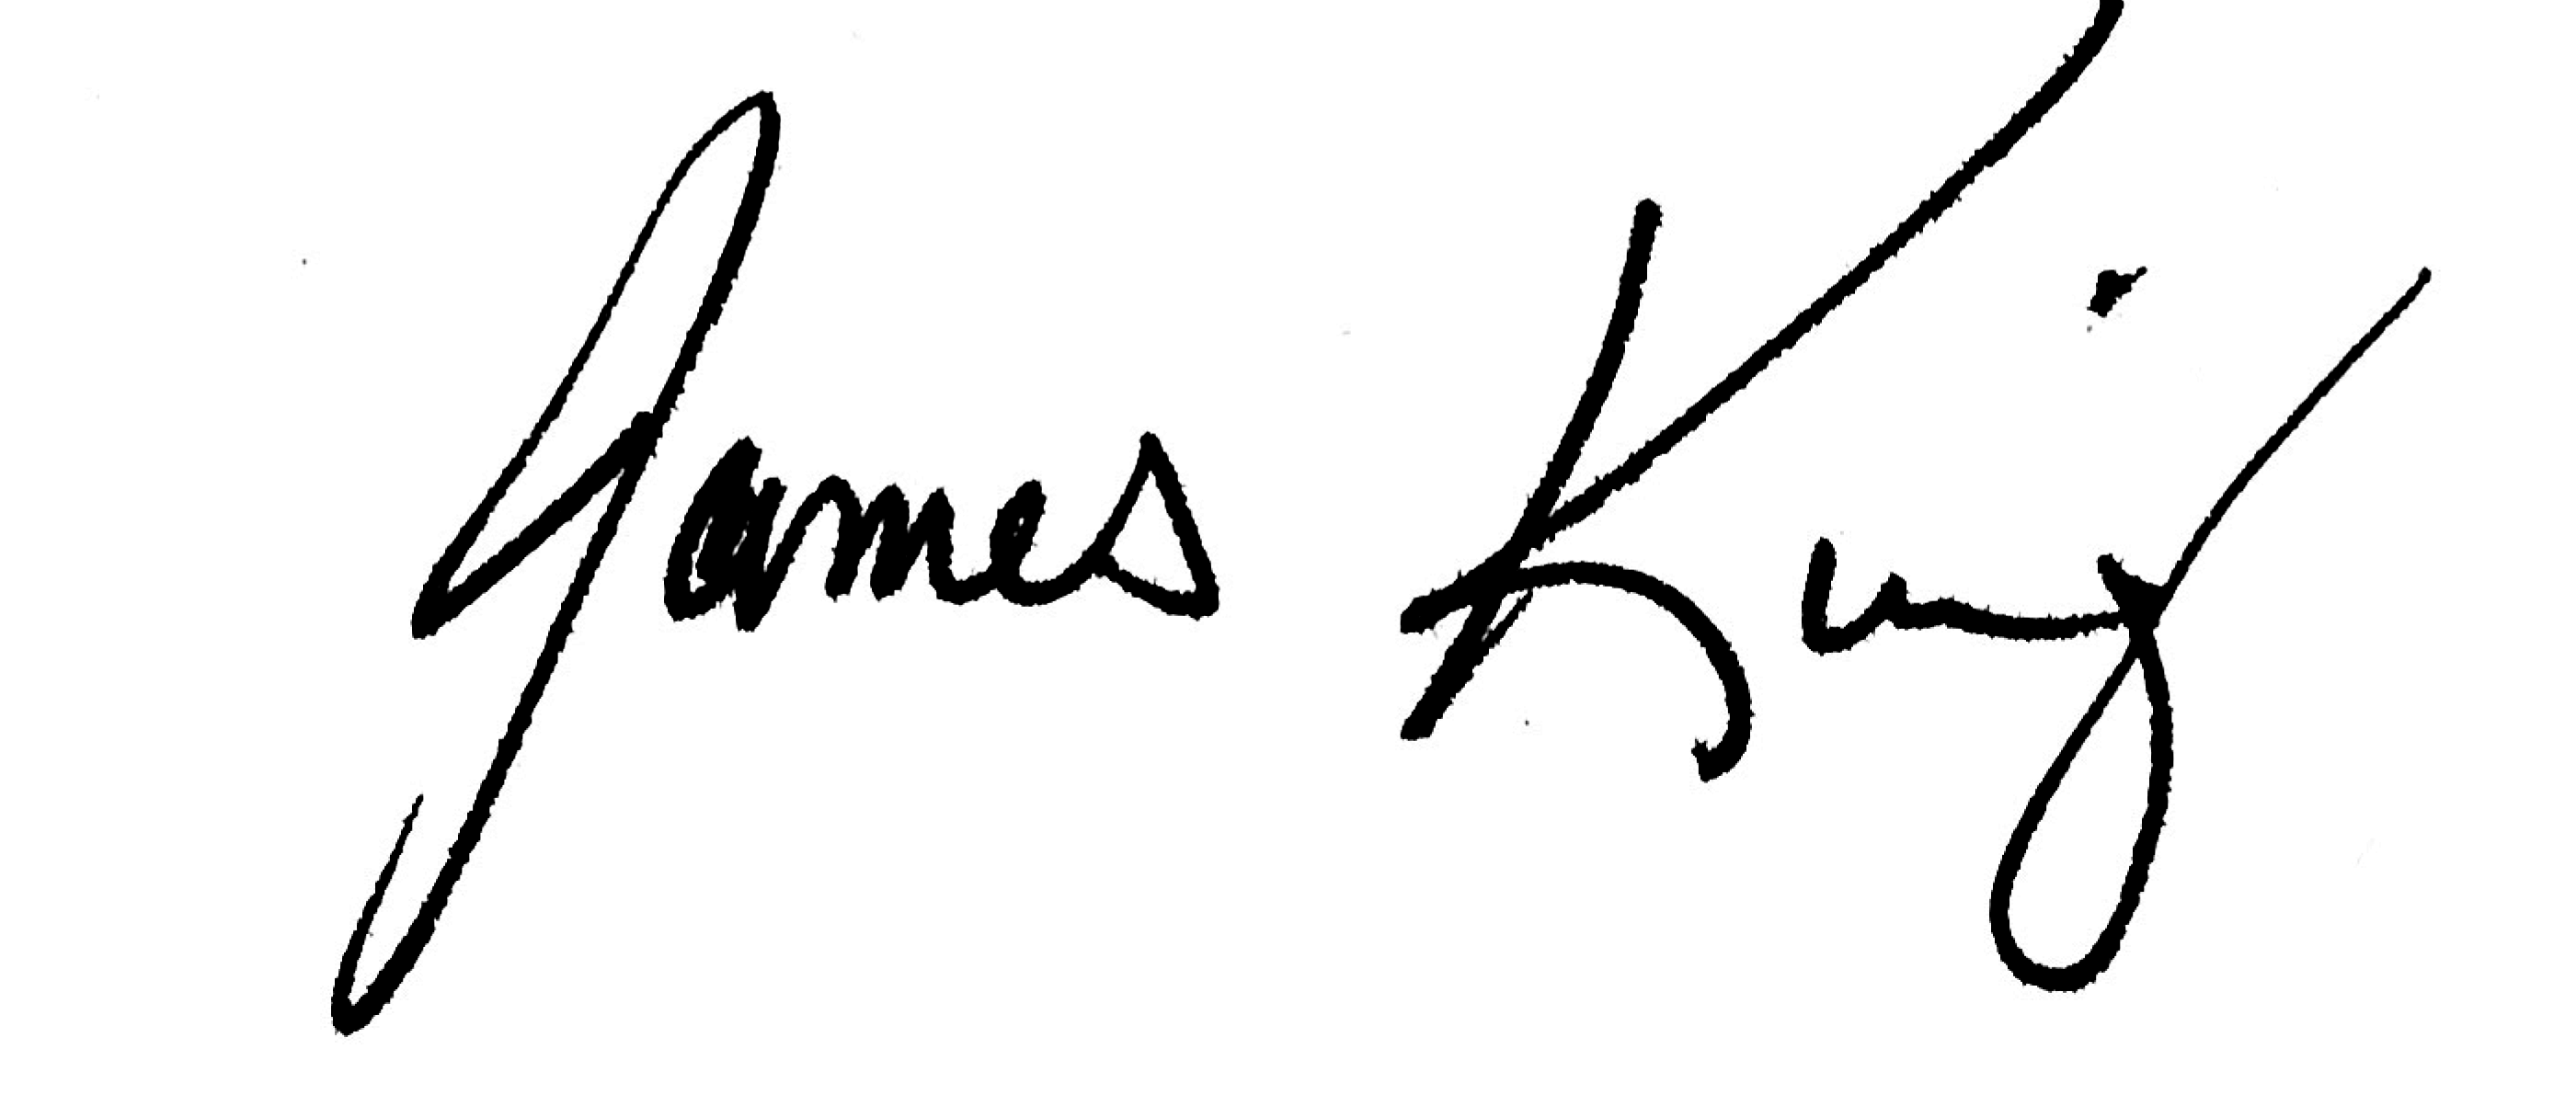 James King